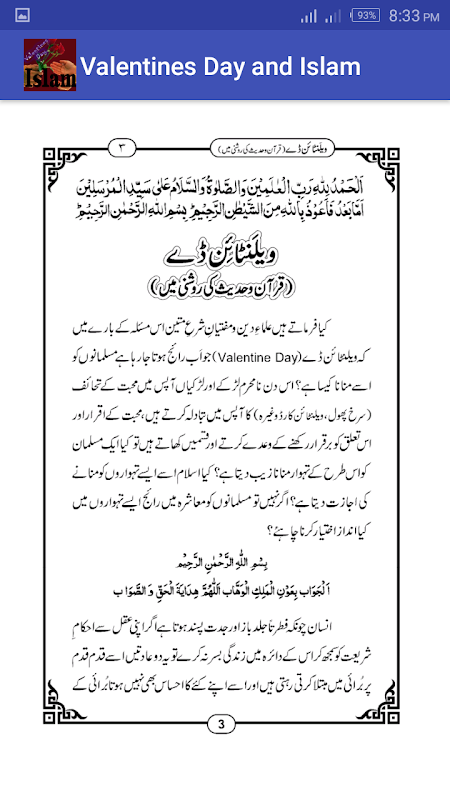 93% 8:33 PM
Valentines Day and Islam
ویلنٹائن ڈے (قرآن و حدیث کی روشنی میں) ٣
اَلْحَمْدُ لِلّٰهِ رَبِّ الْعٰلَمِیْنَ وَالصَّلٰوةُ وَالسَّلَامُ عَلٰی سَیِّدِ الْمُرْسَلِیْنَ
اَمَّا بَعْدُ فَاَعُوْذُ بِاللّٰهِ مِنَ الشَّیْطٰنِ الرَّجِیْمِ ؕ بِسْمِ اللّٰهِ الرَّحْمٰنِ الرَّحِیْمِ ؕ
ویلَنٹائِن ڈے
(قرآن و حدیث کی روشنی میں)
کیا فرماتے ہیں علماءِ دین و مفتیانِ شرعِ متین اس مسئلہ کے بارے میں
کہ ویلنٹائن ڈے (Valentine Day) جو اَب رائج ہوتا جارہا ہے مسلمانوں کو
اسے منانا کیسا ہے؟ اس دن نامحرم لڑکے اور لڑکیاں آپس میں محبت کے تحائف
(سرخ پھول، ویلنٹائن کارڈ وغیرہ) کا آپس میں تبادلہ کرتے ہیں، محبت کے اقرار اور
اس تعلق کو برقرار رکھنے کے وعدے کرتے اور قسمیں کھاتے ہیں تو کیا ایک مسلمان
کو اس طرح کے تہوار منانا زیب دیتا ہے؟ کیا اسلام اسے ایسے تہواروں کو منانے
کی اجازت دیتا ہے؟ اگر نہیں تو مسلمانوں کو معاشرہ میں رائج ایسے تہواروں میں
کیا انداز اختیار کرنا چاہئے؟
بِسْمِ اللّٰهِ الرَّحْمٰنِ الرَّحِیْمِ
اَلْجَوَاب بِعَوْنِ الْمَلِکِ الْوَهَّاب اَللّٰهُمَّ هِدَایَةَ الْحَقِّ وَ الصَّوَاب
انسان چونکہ فطرتاً جلد باز اور جدت پسند ہوتا ہے اگر اپنی عقل سے احکامِ
شریعت کو سمجھ کر اس کے دائرہ میں زندگی بسر نہ کرے تو یہ دو عادتیں اسے قدم قدم
پر بُرائی میں مبتلا کرتی رہتی ہیں اور اسے اپنے کئے کا احساس بھی نہیں ہوتا بُرائی کے
3